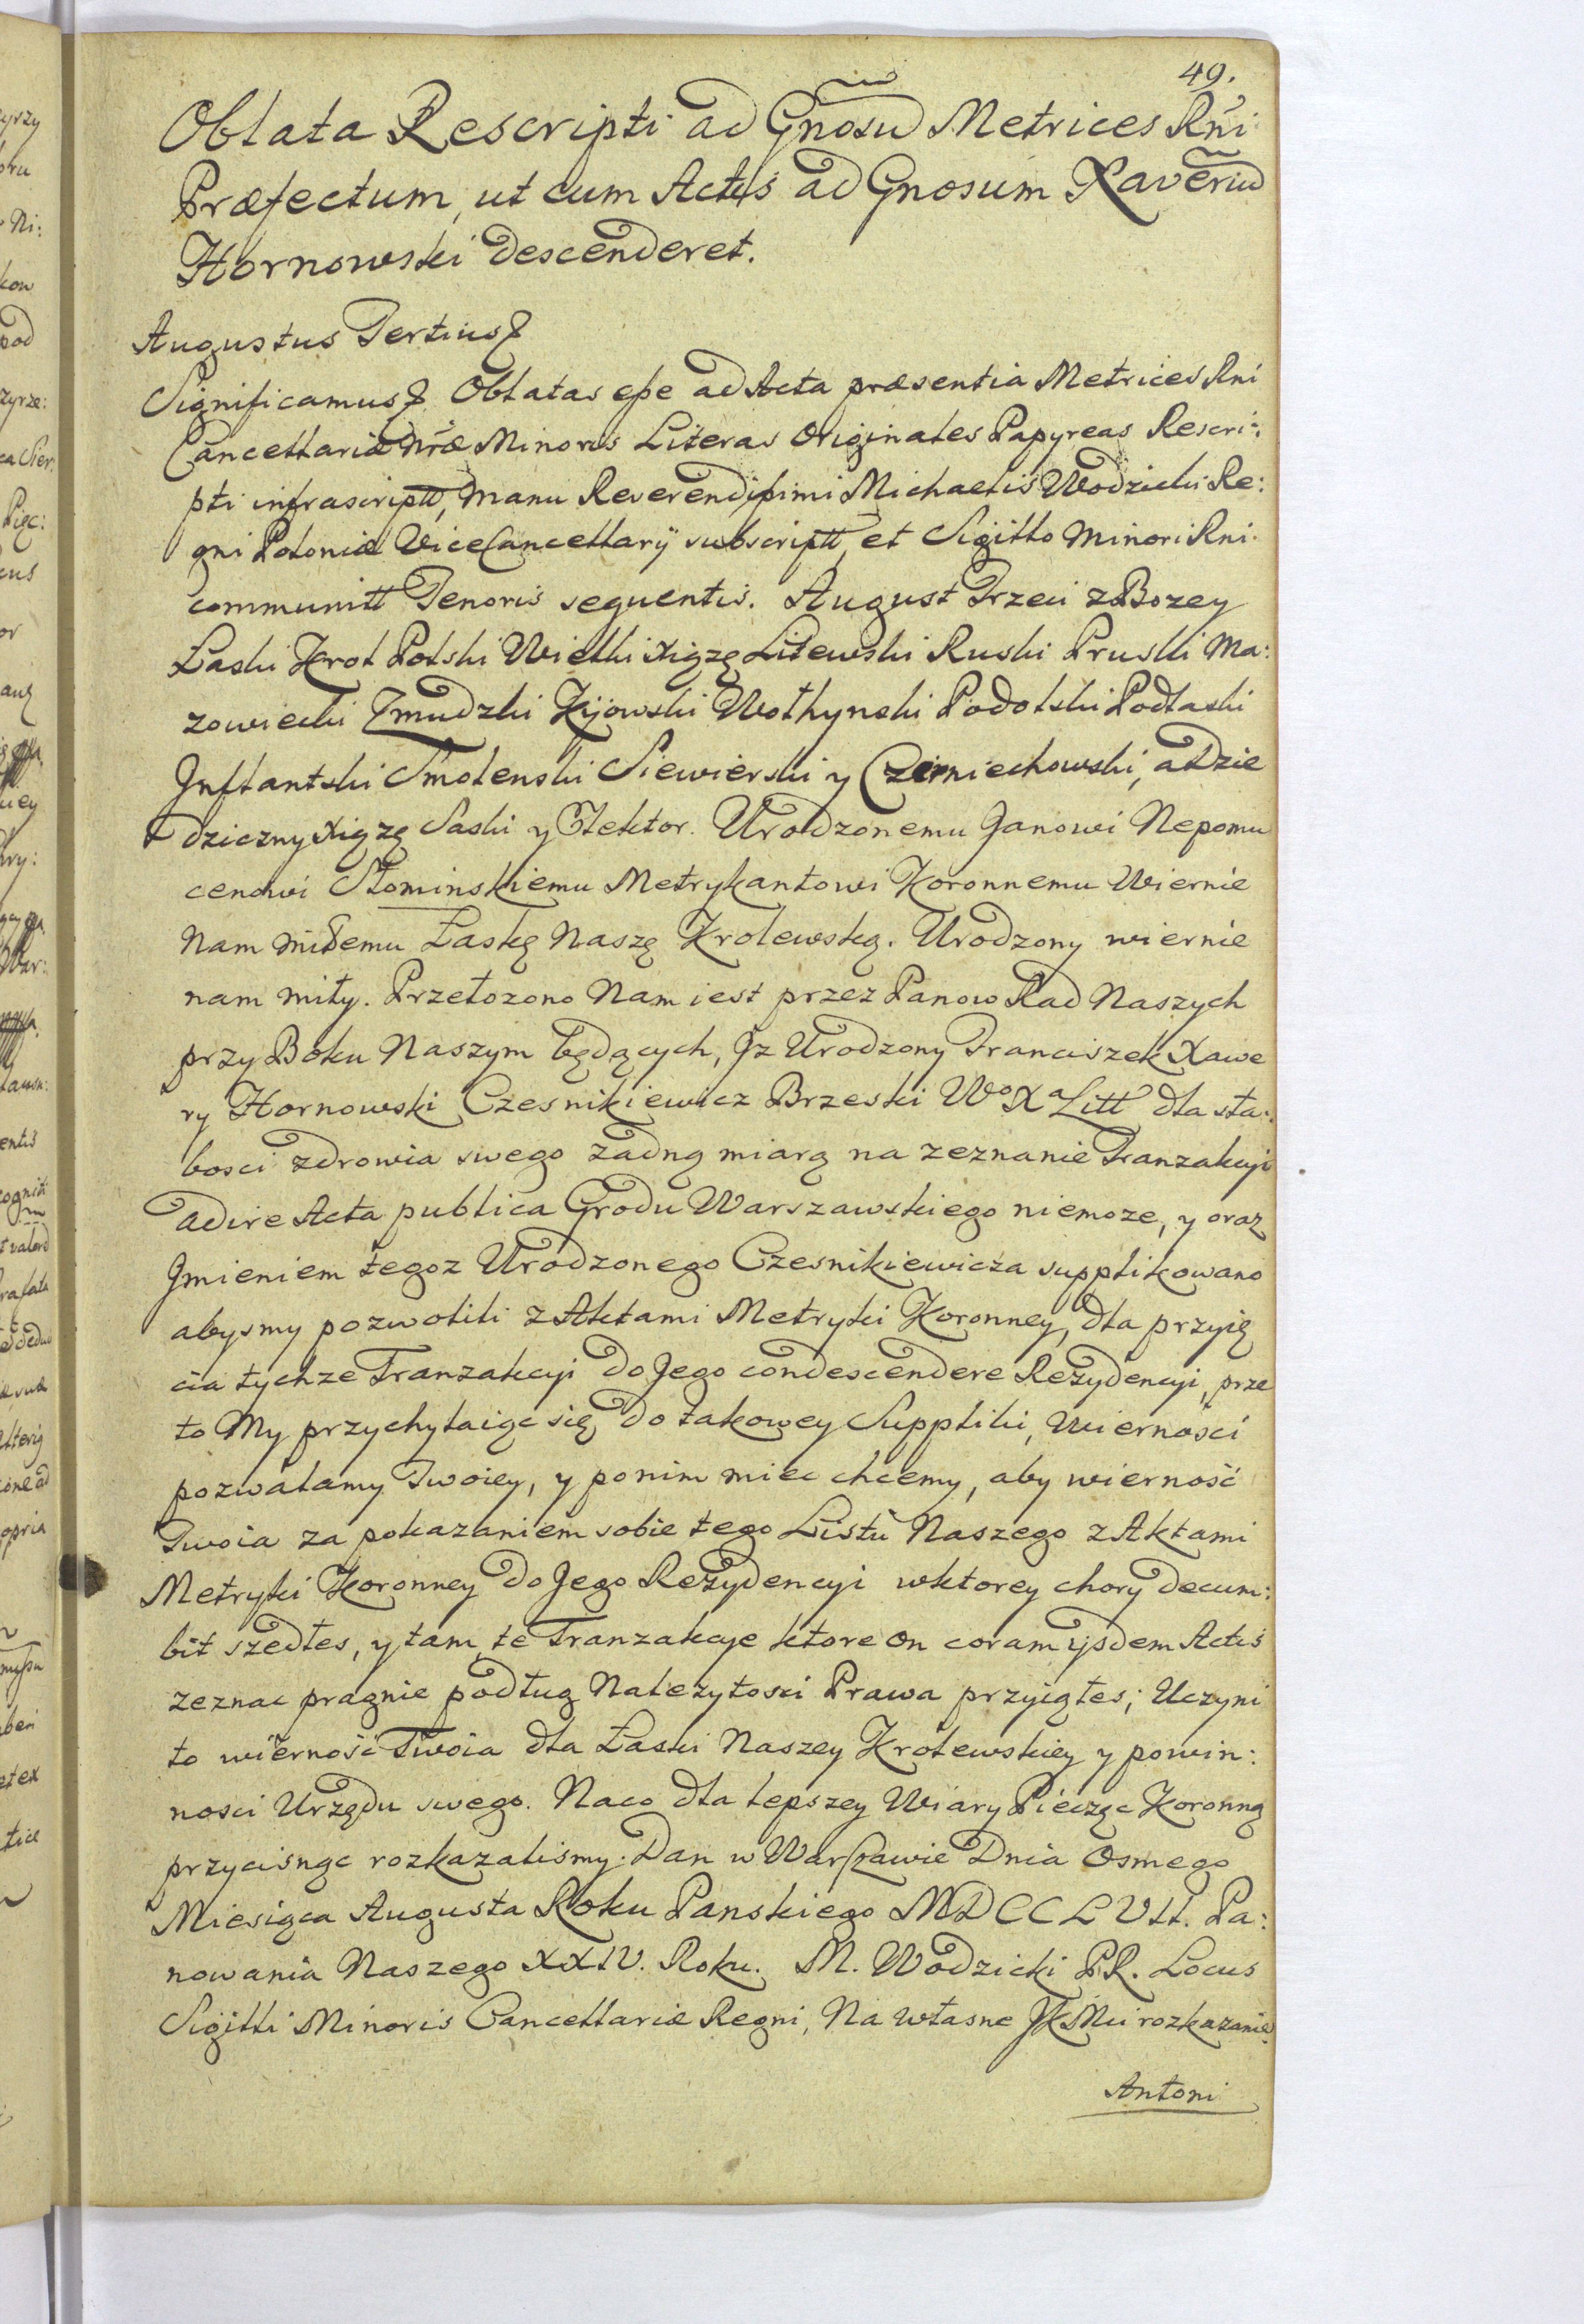 49.
Oblata Rescripti ad Gnõsu Metrices Rńi
Præfectum, ut cum Actis ad Gnosum Xaveriũ
Hornowski descenderet.
Augustus Tertius
Significamus Oblatas eße ad Acta præsentia Metrices Rni
Cancellariæ Nræ Minoris Literas Originales Papyreas Rescri:
pti infrascriptt, manu Reverendißimi Michaelis Wodzicki Re:
gni Poloniæ ViceCancellarÿ subscriptt, et Sigillo minori Rni
communitt Tenoris sequentis. August Trzeci z Bozey
Łaski Krol Polski Wielki Xiąże Litewski Ruski Pruski Ma:
zowiecki Zmudzki Kijowski Wołhynski Podolski Podlaski
Jnflantski Smolenski Siewierski y Czerniechowski, a Dzie
dziczny Xiąże Saski y Elektor. Urodzonemu Janowi Nepomu
cenowi Słominskiemu Metrykantowi Koronnemu Wiernie
Nam miłemu Łaskę Naszę Krolewską. Urodzony wiernie
nam miły. Przełozono Nam iest przez Panow Rad Naszych
przy Boku Naszym będących, Jz Urodzony Franciszek Xawe
ry Hornowski Czesnikiewicz Brzeski Wº Xª Litt dla sła:
bosci zdrowia swego zadną miarą na zeznanie Tranzakcyi
adire Acta publica Grodu Warszawskiego niemoze, y oraz
Jmieniem tegoz Urodzonego Czesnikiewicza supplikowano
abysmy pozwolili z Aktami Metryki Koronney, dla przyię
cia tychze Tranzakcyi do Jego condescendere Rezydencyi, prze
to My przychylaiąc się do takowey Suppliki, Wiernosci
pozwalamy Twoiey, y ponim miec chcemy, aby wierność
Twoia za pokazaniem sobie tego Listu Naszego z Aktami
Metryki Koronney do Jego Rezydencyi wktorey chory decum:
bit szedłes, y tam te Tranzakcye ktore on coram ijsdem Actis
zeznac pragnie podług Nalezytosci Prawa przyiąłes; Uczyni
to wierność Twoia dla Łaski Naszey Krolewskiey y powin:
nosci Urzędu swego. Naco dla lepszey Wiary Pieczęc Koronną
przycisnąc rozkazalismy. Dan w Warszawie Dnia Osmego
Miesiąca Augusta Roku Panskiego MDCCLVII. Pa:
nowania Naszego XXIV. Roku. M. Wodzicki PR. Locus
Sigilli Minoris Cancellariæ Regni, Na własne JKMci rozkazanie
Antoni